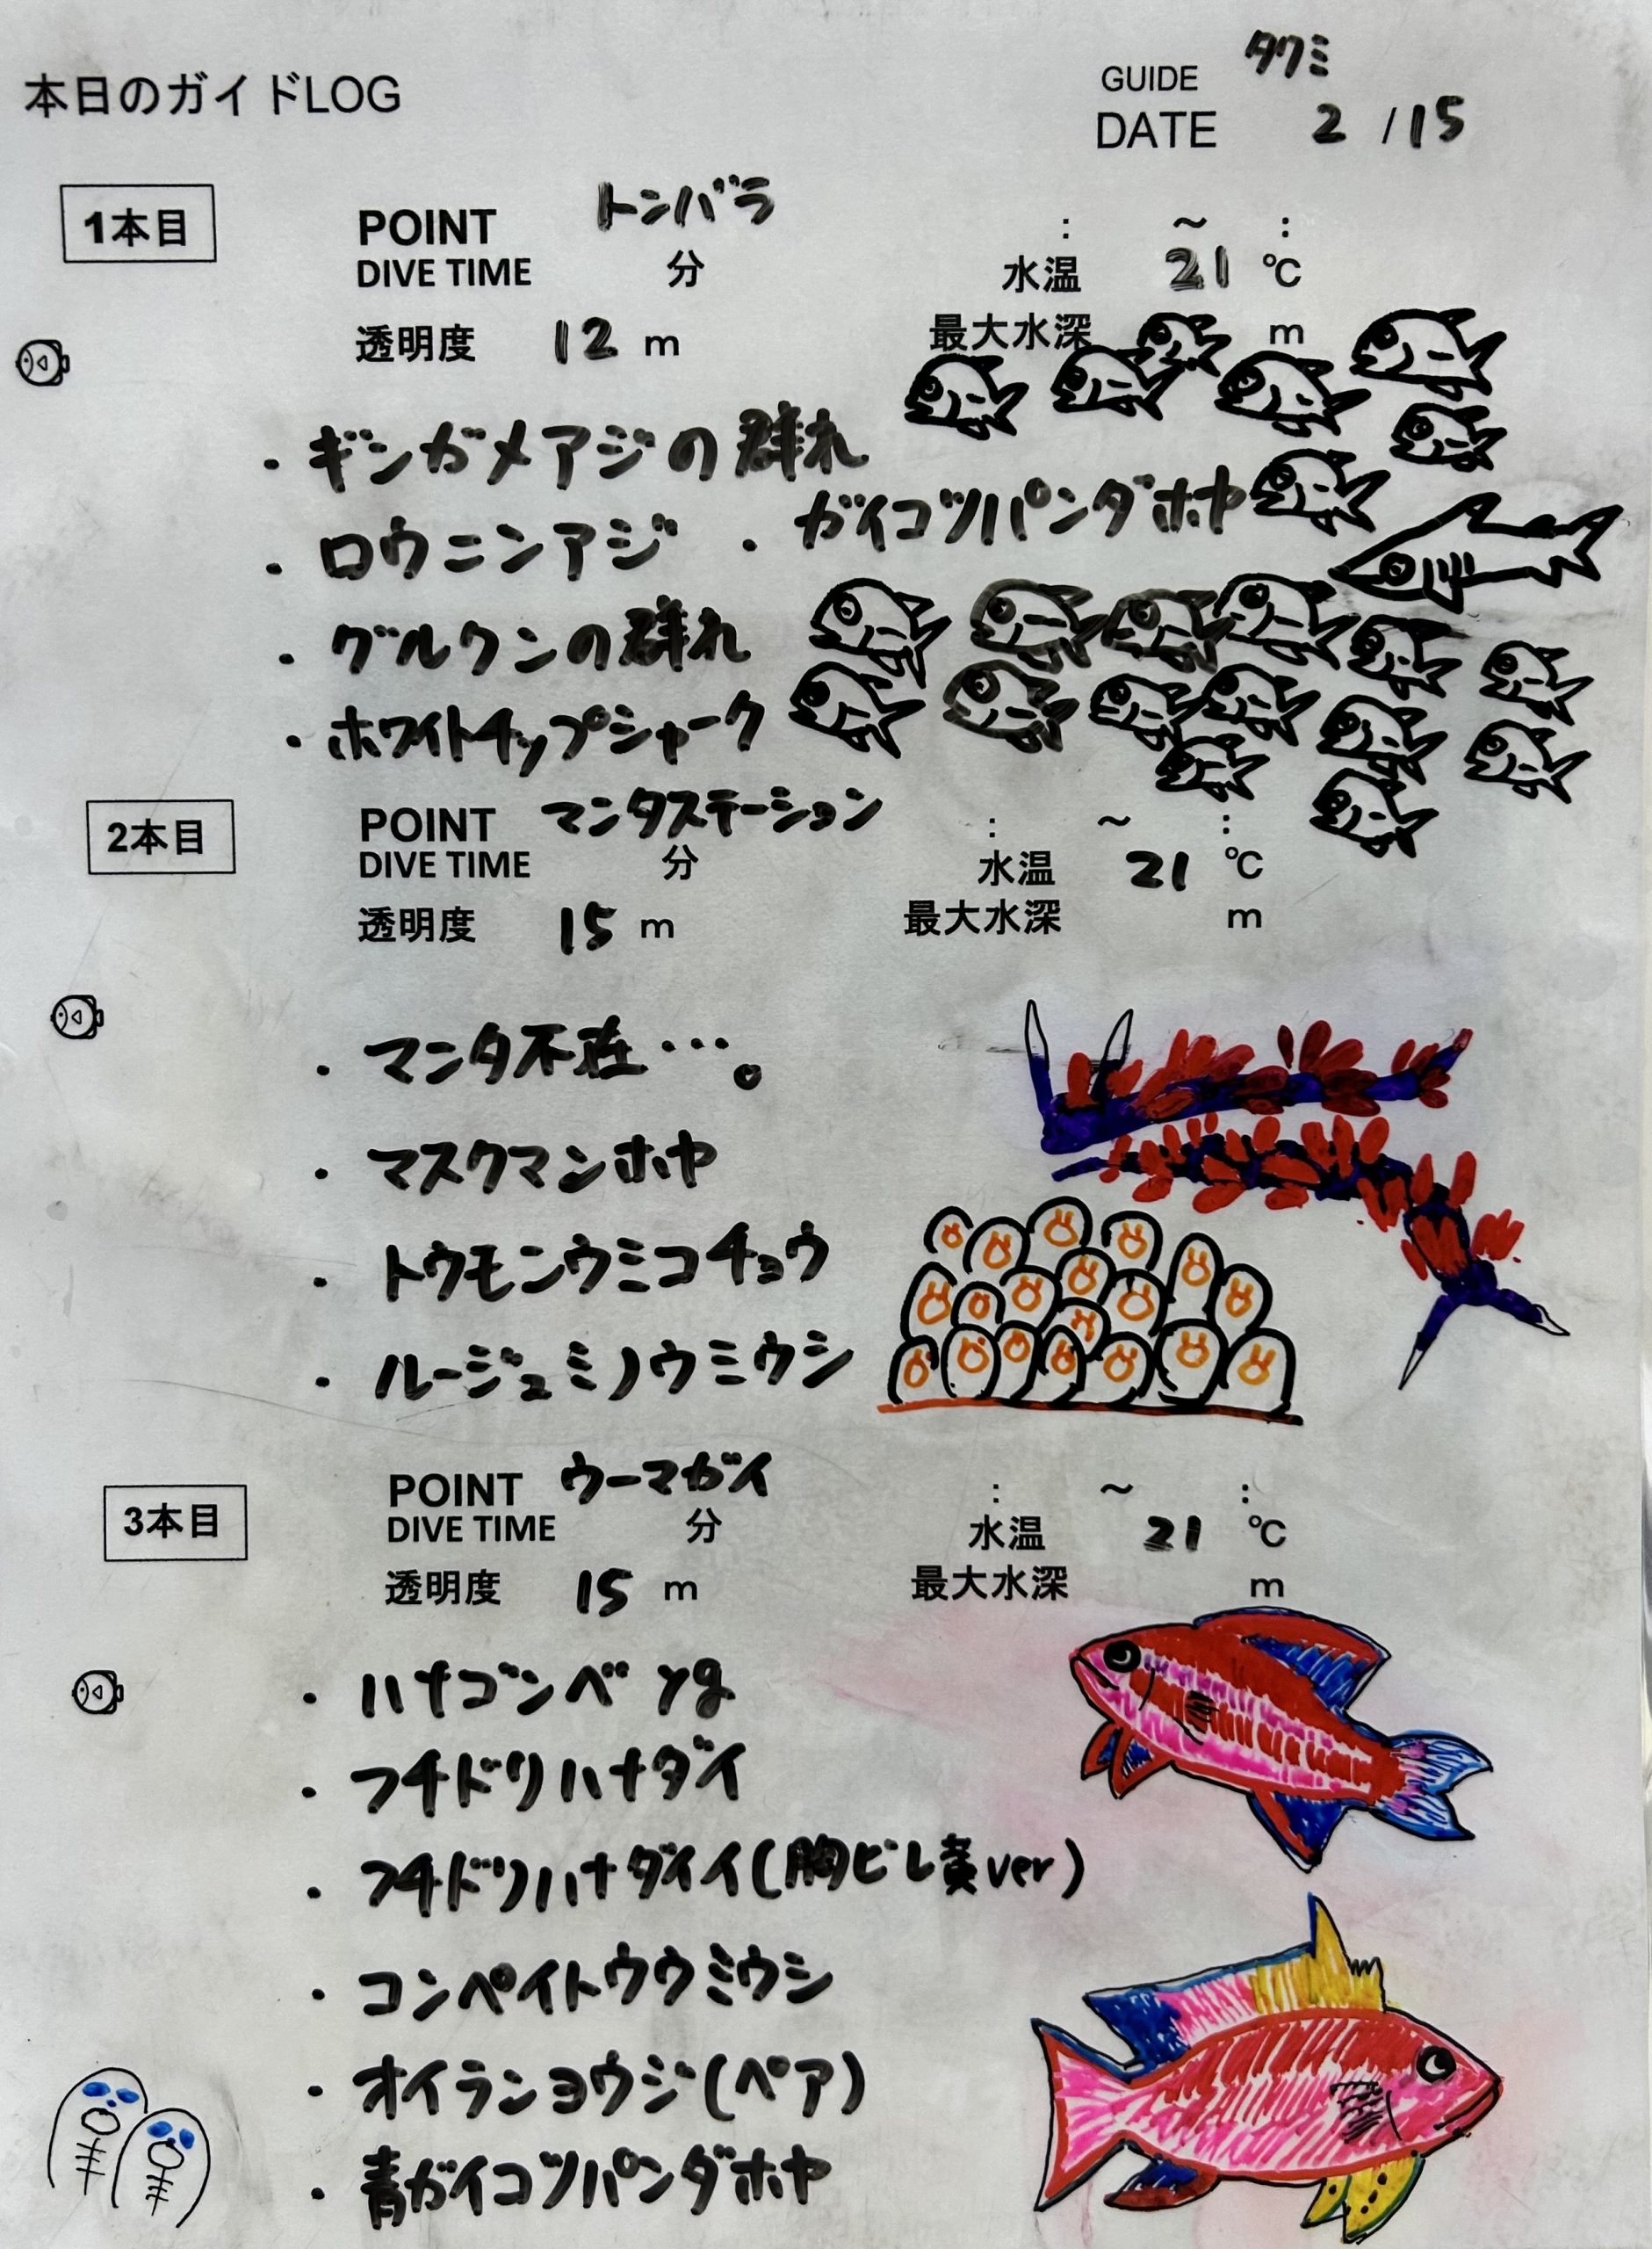 本日のガイドLOG
GUIDE タクミ
DATE 2 /15
1本目
POINT トンバラ : ～ :
DIVE TIME 分 水温 21 ℃
透明度 12 m 最大水深 m
・ギンガメアジの群れ
・ロウニンアジ ・ガイコツパンダホヤ
・グルクンの群れ
・ホワイトチップシャーク
2本目
POINT マンタステーション : ～ :
DIVE TIME 分 水温 21 ℃
透明度 15 m 最大水深 m
・マンタ不在…。
・マスクマンホヤ
・トウモンウミコチョウ
・ルージュミノウミウシ
3本目
POINT ウーマガイ : ～ :
DIVE TIME 分 水温 21 ℃
透明度 15 m 最大水深 m
・ハナゴンベ yg
・フチドリハナダイ
・フチドリハナダイイ(胸ビレ黄ver)
・コンペイトウウミウシ
・オイランヨウジ(ペア)
・青ガイコツパンダホヤ